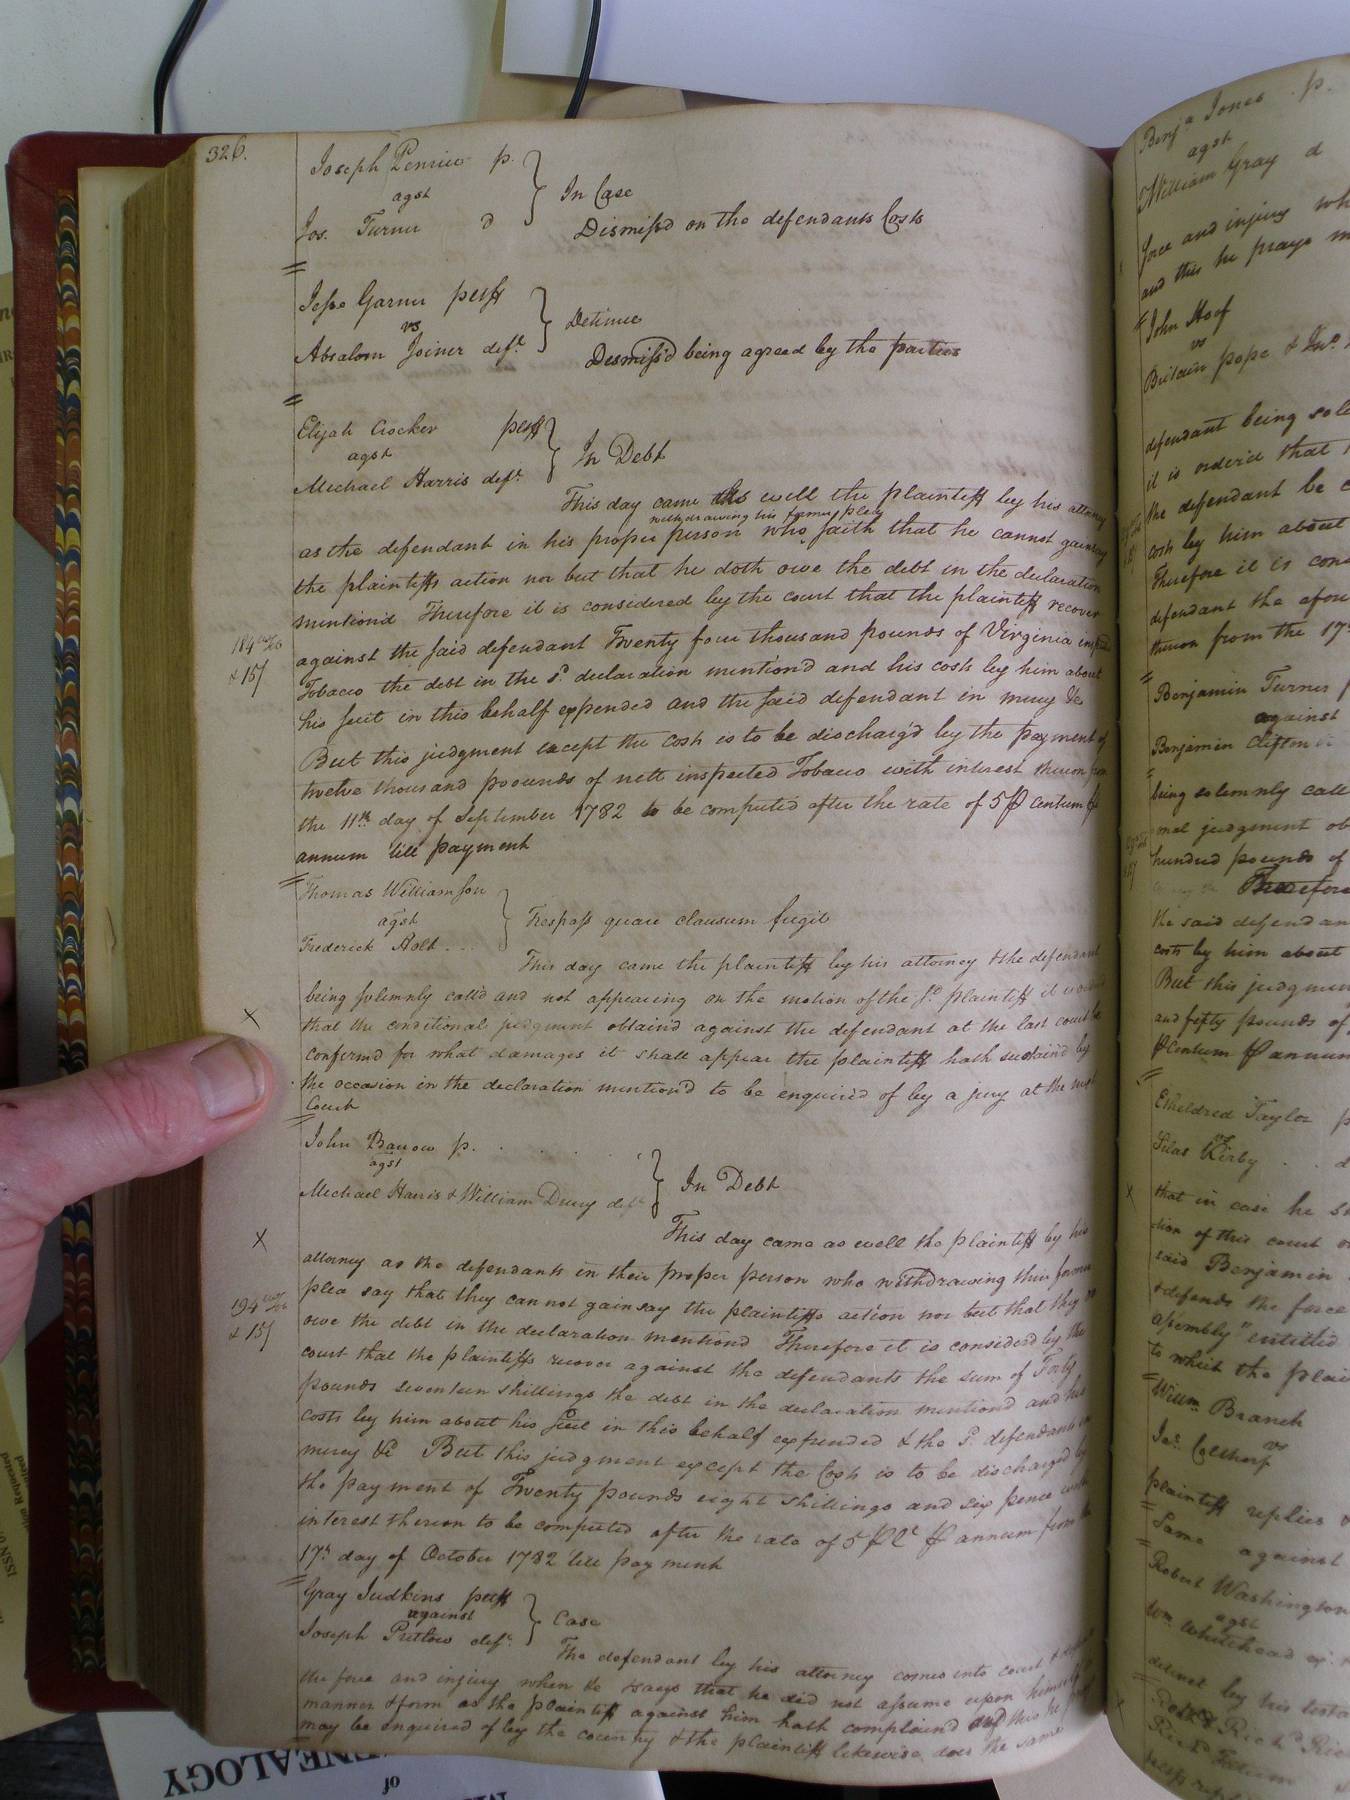 326.
Joseph Penrice p.
agst
Jos. Turner d
In Case
Dismiss'd on the defendants Costs
Jesse Garner pltff
vs
Absalom Joiner deft.
Detinue
Desmiss'd being agreed by the parties
Elijah Crocker pltff
agst
Michael Harris deft.
In Debt
This day came as well the plaintiff by his attorney
withdrawing his former plea
as the defendant in his proper person who saith that he cannot gainsay
the plaintiffs action nor but that he doth owe the debt in the declaration
mention'd Therefore it is considered by the court that the plaintiff recover
against the said defendant Twenty four thousand pounds of Virginia inspected
Tobacco the debt in the sd. declaration mention'd and his costs by him about
his suit in this behalf expended and the said defendant in mercy &c
But this judgment except the costs is to be discharg'd by the payment of
twelve thousand poounds of nett inspected Tobacco with interest thereon from
the 11th day of September 1782 to be computed after the rate of 5 p centum p
annum till payment
184
& 15/
Thomas Williamson
agst
Frederick Holt
Trespass quare clausum fregit
This day came the plaintiff by his attorney & the defendant
being solemnly call'd and not appearing on the motion of the sd. plaintiff it is
that the conditional judgment obtain'd against the defendant at the last court be
confirm'd for what damages it shall appear the plaintiff hath sustain'd by
the occasion in the declaration mention'd to be enquired of by a jury at the next
Court
X
John Barrow p.
agst
Michael Harris & William Drury deft
In Debt
This day came as well the plaintiff by his
attorney as the defendants in their proper person who withdrawing their former
plea say that they cannot gainsay the plaintiffs action nor but that they do
owe the debt in the declaration mentiond Therefore it is considerd by the
court that the plaintiffs recover against the defendants the sum of Forty
pounds seventeen shillings the debt in the declaration mentiond and his
costs by him about his suit in this behalf expended & the sd. defendants in
mercy &c But this judgment except the Costs is to be discharged by
the payment of Twenty pounds eight shillings and six pence with
interest thereon to be computed after the rate of 5 p Ct p annum from the
17th day of October 1782 till payment
X
194
& 15/
Gray Judkins pltff
against
Joseph Pretlow deft.
Case
The defendant by his attorney comes into court & defends
the force and injury when &c & says that he did not assume upon himself in
manner & form as the plaintiff against him hath complaind and this he prays
may be enquired of by the country & the plaintiff likewise does the same
Benja Jones p.
agst
William Gray d
force and injury wh
and this he prays m
John Hoof
vs
Britain pope & Jno.
defendant being sole
it is order'd that
the deffendant be c
costs by him about
Therefore it is cons
defendant the afore
thereon from the 17th
Benjamin Turner p
against
Benjamin Clifton
being solemnly call
onal judgement ob
hundred pounds of
Therefore
the said defendan
costs by him about
But this judgmen
and fifty pounds of
p Centum p annum
Etheldred Taylor p
vs
Silas Kirby d
that in case he s
tion of this court o
said Benjamin
& defends the force
assembly "entitled
to which the plai
Willm Branch
vs
Js. Calthorp
plaintiff replies
Same against
Robert Washington
agst
Wm Whitehead exr
detinet by his testa
GENEALOGY
of
ISSN 0